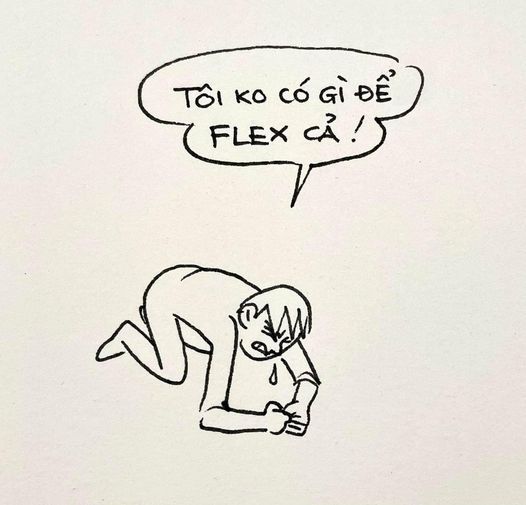 TÔI KO CÓ GÌ ĐỂ
FLEX CẢ!